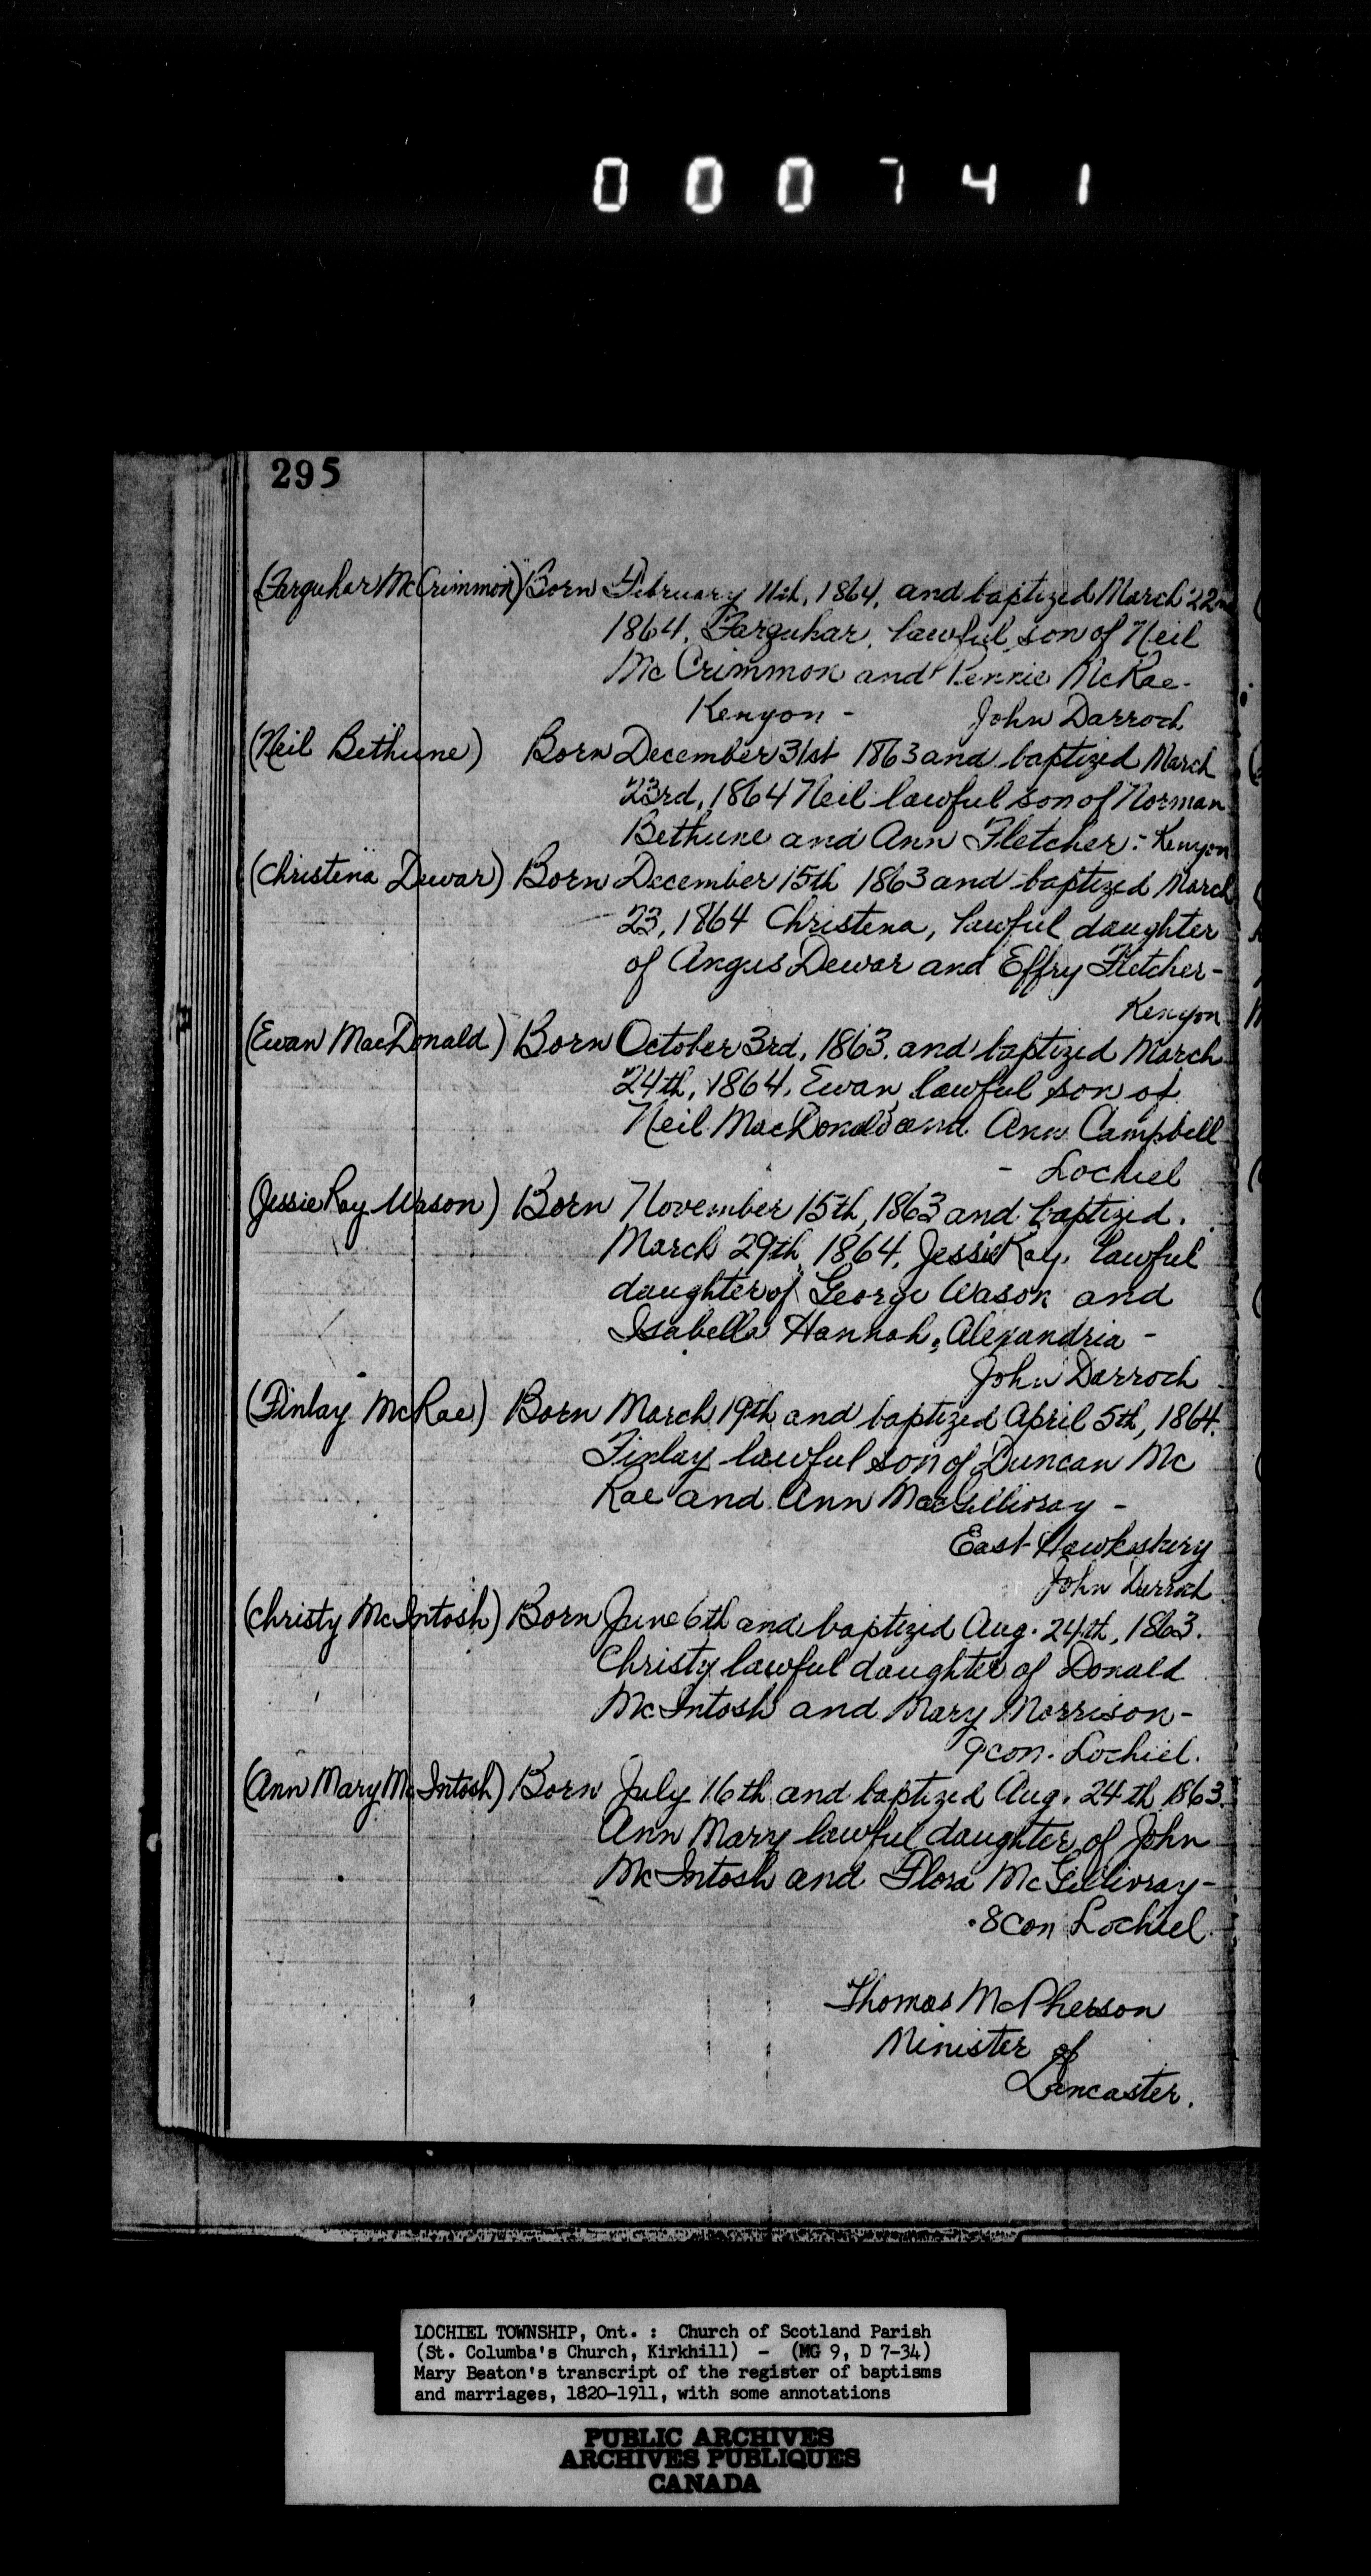 000741
295
(Farquhar McCrimmon) Born February 11th, 1864, and baptized March 22nd
1864, Farquhar, lawful son of Neil
McCrimmon and Pennie McRae-
Kenyon - John Darroch
(Neil Bethune) Born December 31st 1863 and baptized March
23rd, 1864 Neil lawful son of Norman
Bethune and Ann Fletcher - Kenyon
(Christena Dewar) Born December 15th 1863 and baptized March
23, 1864 Christena, lawful daughter
of Angus Dewar and Effry Fletcher-
Kenyon
(Ewan MacDonald) Born October 3rd, 1863. and baptized March
24th, 1864, Ewan lawful son of
Neil MacDonald and Ann Campbell
- Lochiel
(Jessie Kay Wason) Born November 15th, 1863 and baptized
March 29th, 1864, Jessie Kay, lawful
daughter of George Wason and
Isabella Hannah, Alexandria -
John Darroch
(Finlay McRae) Born March 19th and baptized April 5th, 1864.
Finlay lawful son of Duncan Mc
Rae and Ann MacGillivray -
East Hawksbury
John Darroch
(Christy McIntosh) Born June 6th and baptized Aug. 24th, 1863.
Christy lawful daughter of Donald
McIntosh and Mary Morrison-
9 con. Lochiel.
(Ann Mary McIntosh) Born July 16th and baptized Aug. 24th 1863.
Ann Mary lawful daughter of John
McIntosh and Flora McGillivray-
8 con Lochiel
Thomas McPherson
Minister of
Lancaster.
LOCHIEL TOWNSHIP, Ont. : Church of Scotland Parish
(St. Columba's Church, Kirkhill) - (MG 9, D 7-34)
Mary Beaton's transcript of the register of baptisms
and marriages, 1820-1911, with some annotations
PUBLIC ARCHIVES
ARCHIVES PUBLIQUES
CANADA